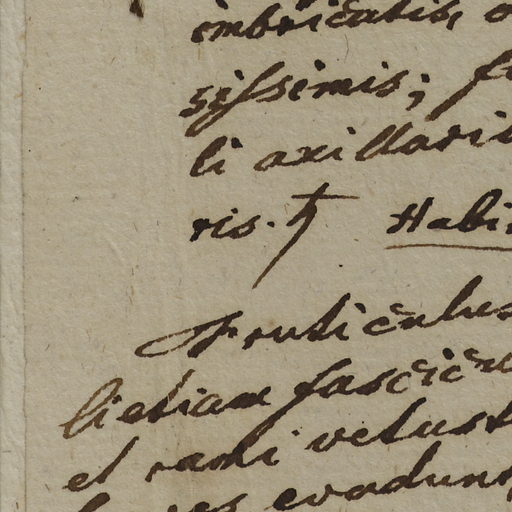 imbricatis, o
sissimis; f
li axillaris
ris. ♄ Habi
Fruticulus
li etiam fascicu
et rami vetust
evadunt